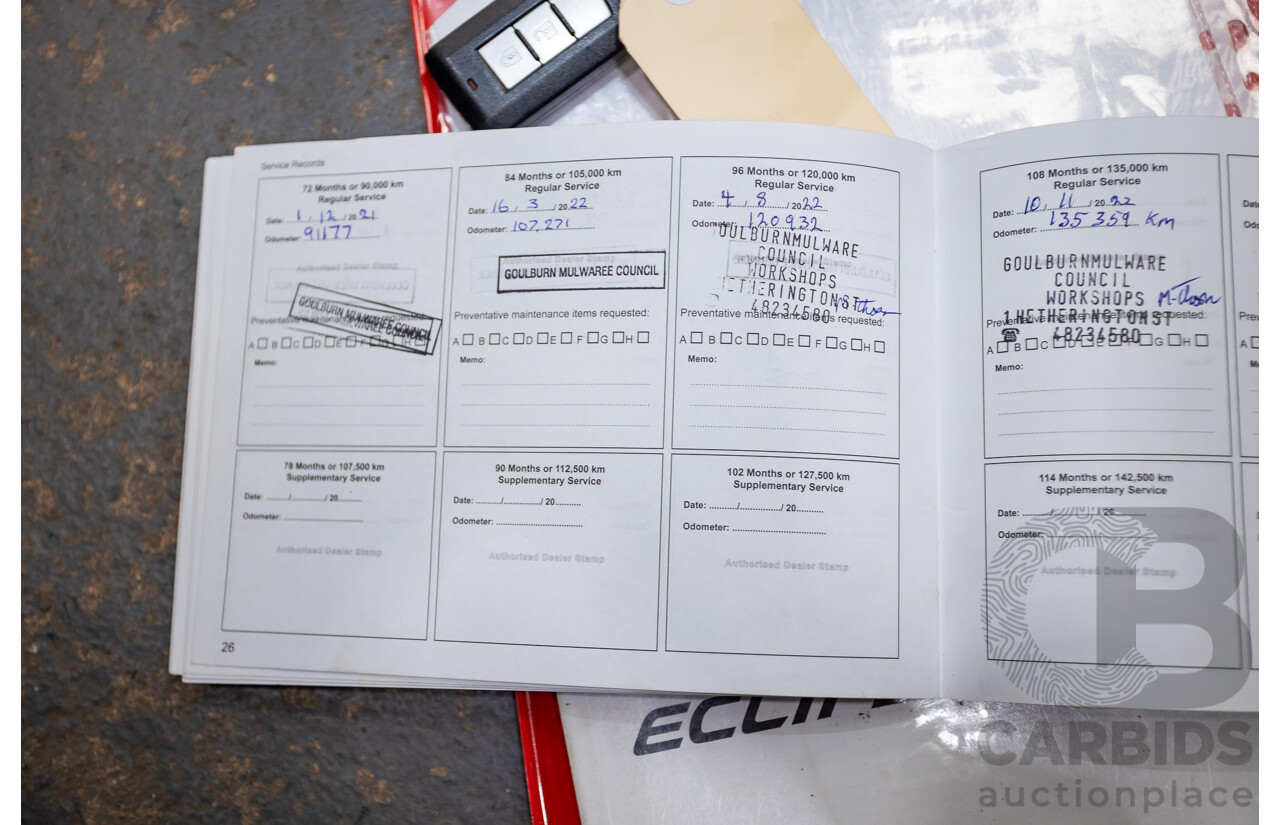 Service Records
72 Months or 90,000 km
Regular Service
Date: 1 / 12 / 20 21
Odometer: 91177
Authorised Dealer Stamp
GOULBURN MULWAREE COUNCIL
Preventative maintenance items requested:
A B C D E F G H
Memo:
84 Months or 105,000 km
Regular Service
Date: 16 / 3 / 20 22
Odometer: 107,271
GOULBURN MULWAREE COUNCIL
Preventative maintenance items requested:
A B C D E F G H
Memo:
96 Months or 120,000 km
Regular Service
Date: 4 / 8 / 20 22
Odometer: 120932
OULBURNMULWARE
COUNCIL
WORKSHOPS
HETHERINGTONST
48234580
Preventative maintenance items requested:
A B C D E F G H
Memo:
108 Months or 135,000 km
Regular Service
Date: 10 / 11 / 20 22
Odometer: 135359 Km
GOULBURNMULWARE
COUNCIL
WORKSHOPS
1 HETHERINGTONST
☎ 48234580
A B C D E F G H
Memo:
78 Months or 107,500 km
Supplementary Service
Date: ........./............/ 20.........
Odometer: ..............................
Authorised Dealer Stamp
90 Months or 112,500 km
Supplementary Service
Date: ........./............/ 20.........
Odometer: ..............................
Authorised Dealer Stamp
102 Months or 127,500 km
Supplementary Service
Date: ........./............/ 20.........
Odometer: ..............................
Authorised Dealer Stamp
114 Months or 142,500 km
Supplementary Service
Date: ........./............/ 20.........
Odometer: ..............................
Authorised Dealer Stamp
26
CB
CARBIDS
auctionplace